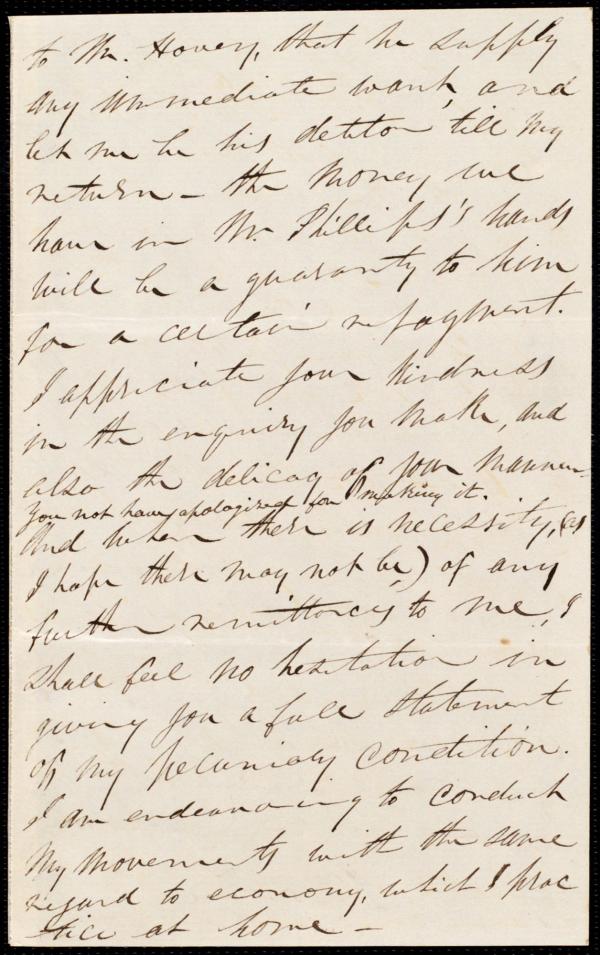 to Mr. Hovey, that he supply
any immediate want, and
let me be his debtor till my
return – the money we
have in Mr. Phillips's hands
will be a guaranty to him
for a certain repayment.
I appreciate your kindness
in the enquiry you make, and
also the delicacy of your manner –
you not have apologized for making it.
And when there is necessity, (as
I hope there may not be) of any
further remittances to me, I
shall feel no hesitation in
giving you a full statement
of my pecuniary condition.
I am endeavoring to conduct
my movements with the same
regard to economy, which I prac
tice at home –